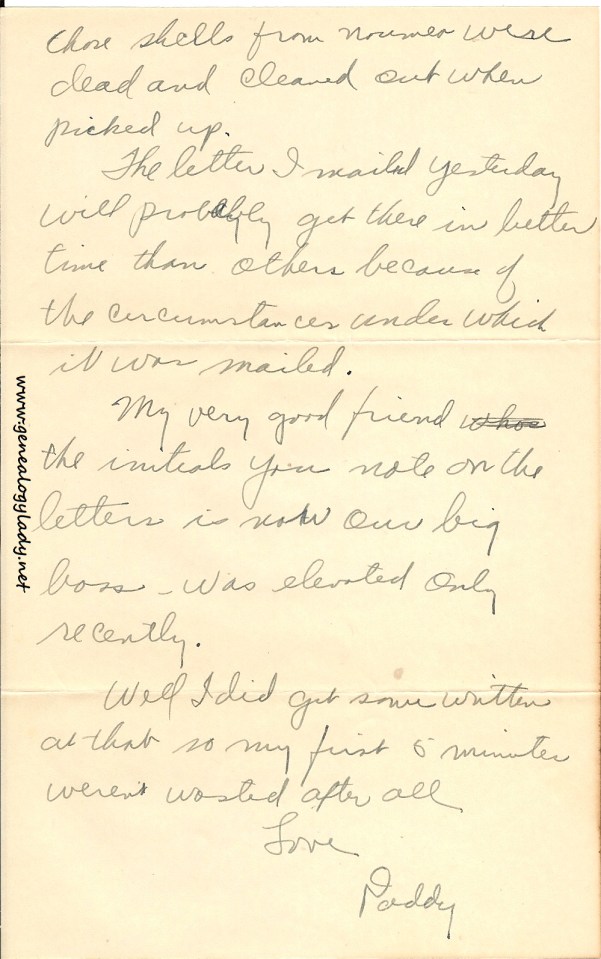 those shells from noumea were
dead and cleaned out when
picked up.
The letter I mailed yesterday
will probably get there in better
time than others because of
the circumstances under which
it was mailed.
My very good friend whos
the initials you note on the
letters is now our big
boss – was elevated only
recently.
Well I did get some written
at that so my first 5 minutes
weren't wasted after all
Love
Daddy
www.genealogylady.net